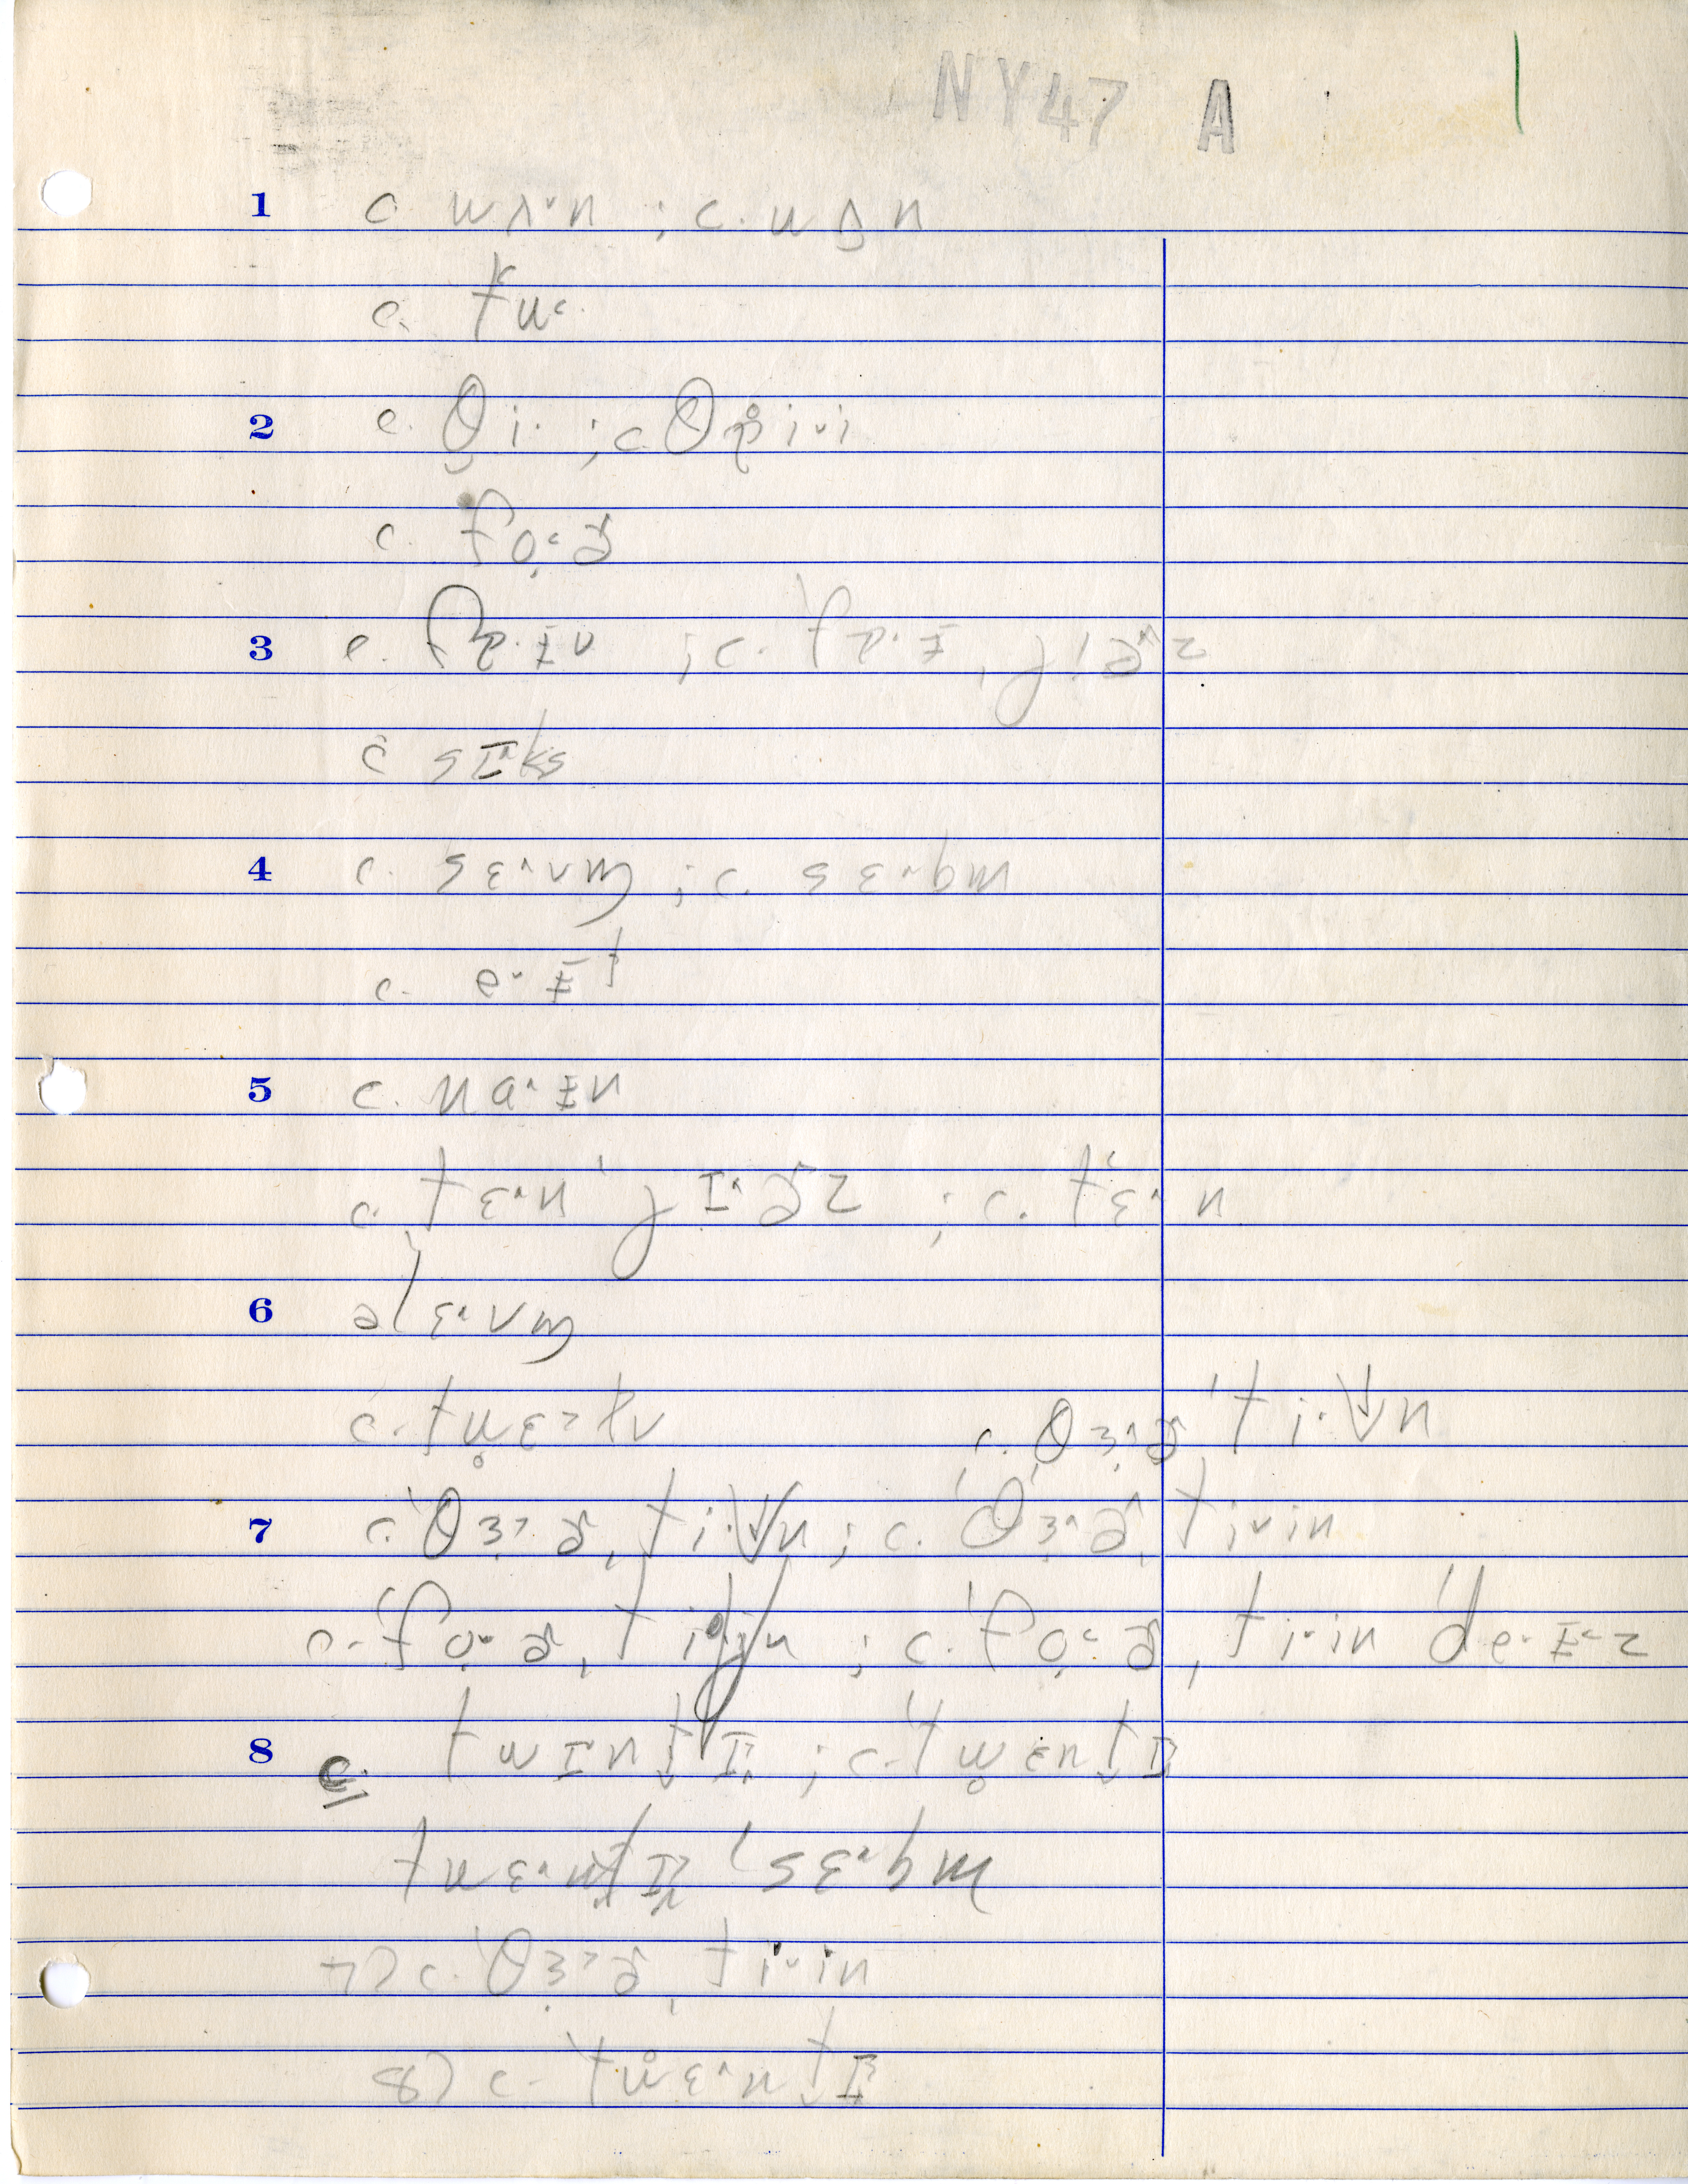 NY47 A
1 c. wʌ˞n ; c. wʌn
c. tu˂
2 c. θi· ; c. θr̥i˅i
c. fo̜˂ɚ
3 c. fa·ɪv ; c. 'fa·ɪ, jɪɚ˄z
c sɪ˄ks
4 c. sɛ˄vm̩ ; c. sɛ˄bm
c. e˅ɪt
5 c. na˄ɪn
c. tɛ˄n'jɪ˄ɚz ; c. tɛ˄n
6 əlɛ˄vm̩
c. tw̥ɛ˃lv
c. 'θɜ˄ɚ'ti·n
7 c. 'θɜ˃ɚ,ti·n ; c. 'θɜ˄ɚ,ti˅in
c. 'fo̜˅ɚ,tijn ; c. 'fo̜˂ɚ,ti˅in 'de·ɪ˂z
8 c. twɪntɪ ; c. 'tw̥ɛntɪ
twɛ˄ntɪ 'sɛ˄bm
7) c. 'θɜ˃ɚ,ti˅in
8) c. 'tw̥ɛ˄ntɪ